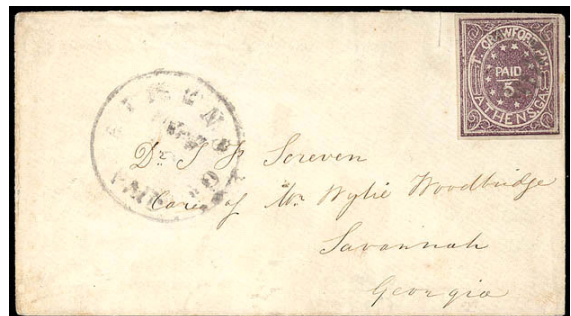 T. CRAWFORD, P.M.
PAID
5
ATHENS, GA.
ATHENS
Dr. J P Screven
Care of Mr Wylie Woodbridge
Savannah
Georgia